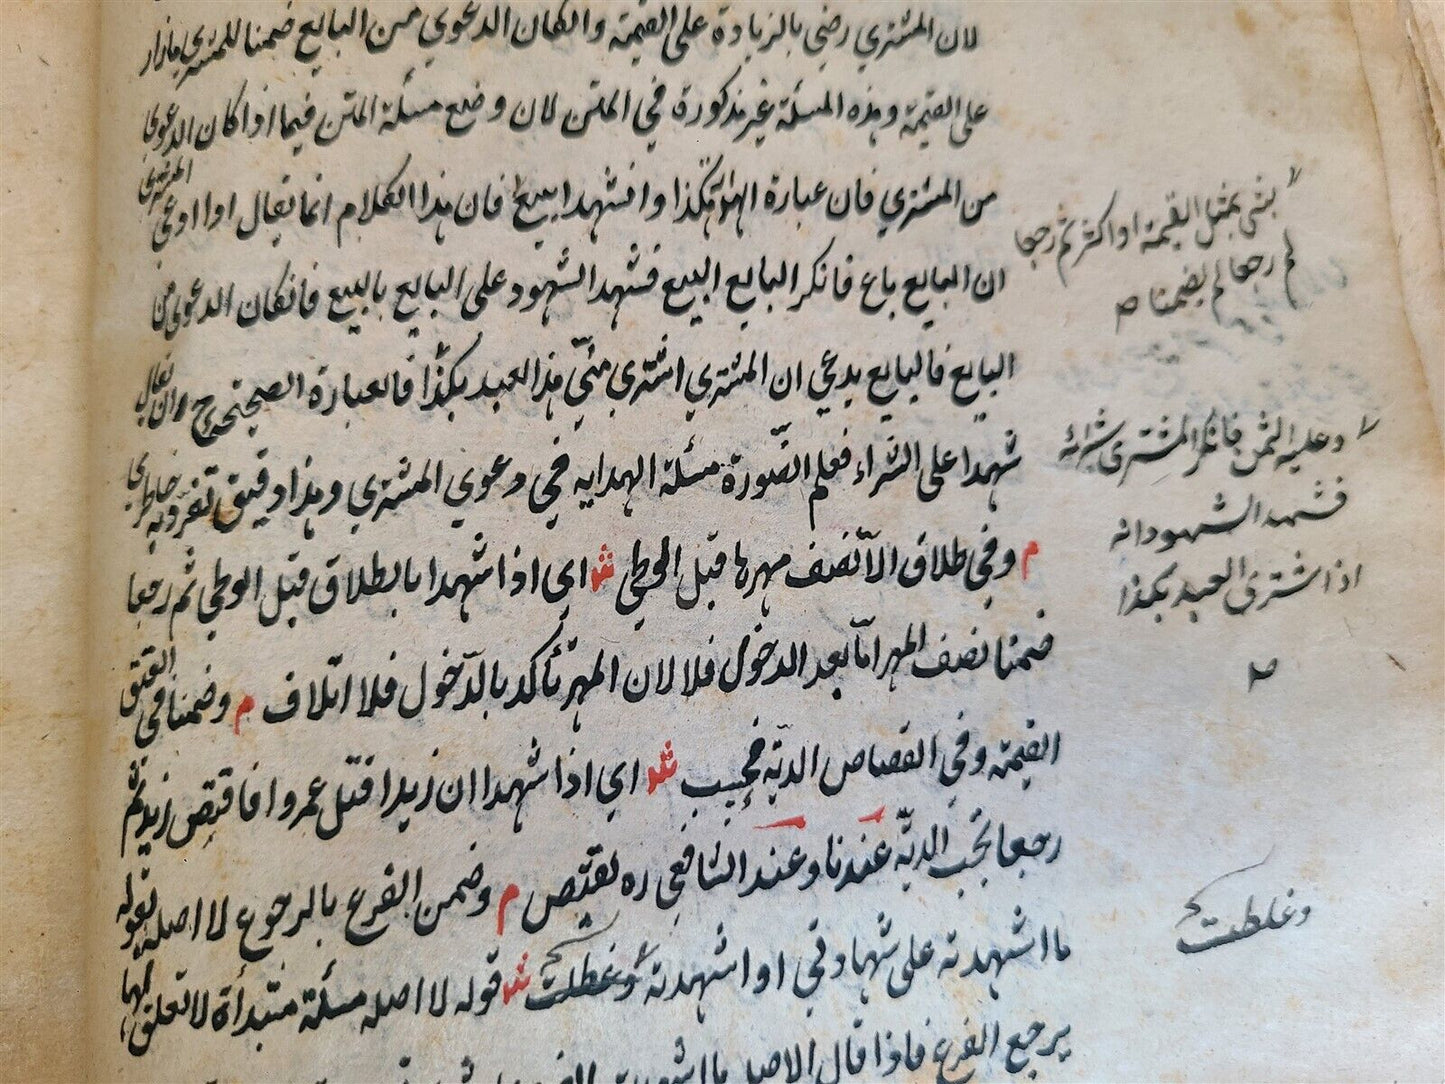 لان المشتري رضي بالزيادة على القيمة وان كان الدعوي من البايع ضمنا للمشتري ما زاد
على القيمة وهذه المسئلة غير مذكورة في المتن لان وضع مسئلة المتن فيما اذا كان الدعوي
من المشتري فان عبارة الهداية هكذا وان شهدا ببيع فان هذا الكلام انما يقال اذا ادعي
المشتري
ان البايع باع فانكر البايع البيع فشهد الشهود على البايع بالبيع فان كان الدعوي من
البايع فالبايع يدعي ان المشتري اشتري مني هذا العبد بكذا فالعبارة الصحيحة ح ان يقال
شهدا على الشراء فعلم ان صورة مسئلة الهداية في دعوي المشتري وهذا دقيق تفرد به خاطري
م وفي طلاق الا نصف مهرها قبل الوطي ش اي اذا شهدا بالطلاق قبل الوطي ثم رجعا
ضمنا نصف المهر اما بعد الدخول فلا لان المهر تأكد بالدخول فلا اتلاف م وضمنا في العتق
القيمة وفي القصاص الدية فحسب ش اي اذا شهدا ان زيدا قتل عمروا فاقتص زيد ثم
رجعا تجب الدية عندنا وعند الشافعي ره يقتص م وضمن الفرع بالرجوع لا اصله بقوله
ما اشهدته على شهادتي او اشهدته وغلطت ش قوله لا اصله مسئلة مبتدأة لا تعلق لها
يرجع الفرع فاذا قال الاصل ما اشهدت
بشئ بمثل القيمة او اكثر ثم رجعا
لم يضمنا صح
وعليه الثمن فانكر المشتري شرائه
فشهد الشهود انه
اشتري العبد بكذا
صح
وغلطت